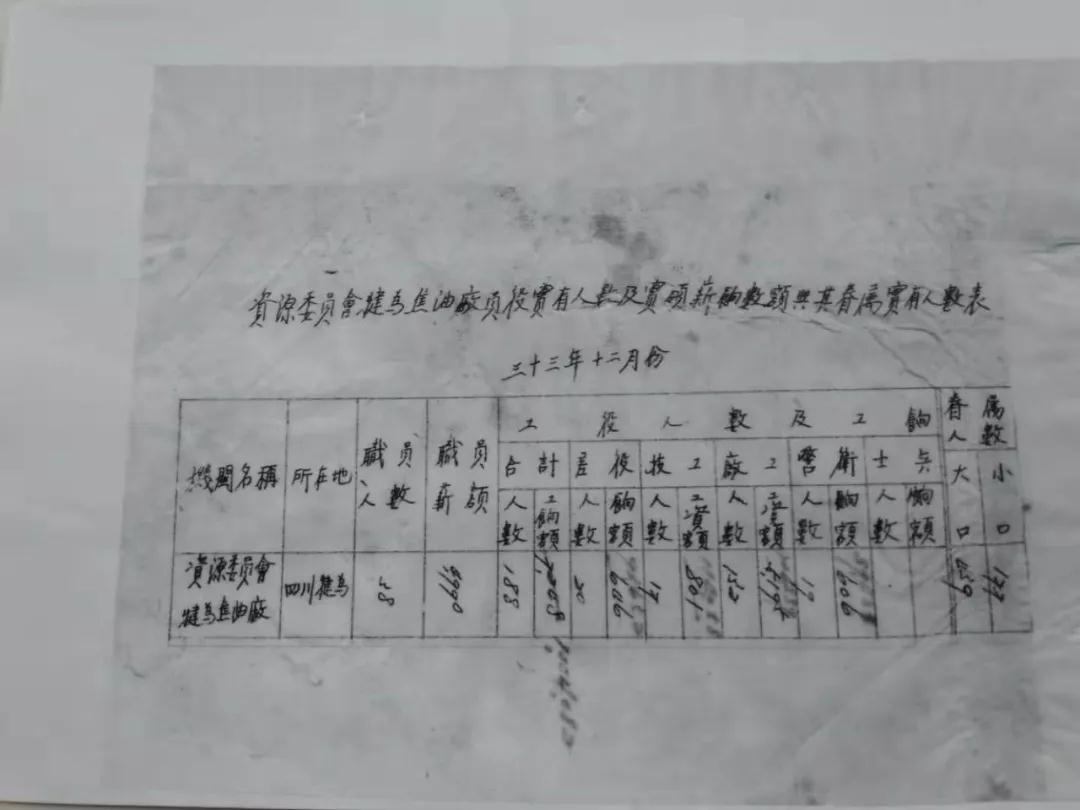 資源委員會犍為焦油廠員役實有人數及實領薪餉數額與其眷屬實有人數表
三十三年十二月份
機關名稱 所在地 職員人數 職員薪額 工役人數及工餉 眷屬人數
合計 差役 技工 廠工 警衛 士兵 大口 小口
人數 工餉額 人數 餉額 人數 工資額 人數 工資額 人數 餉額 人數 餉額
資源委員會犍為焦油廠 四川犍為 58 6990 188 20 606 17 801 132 19 606 177